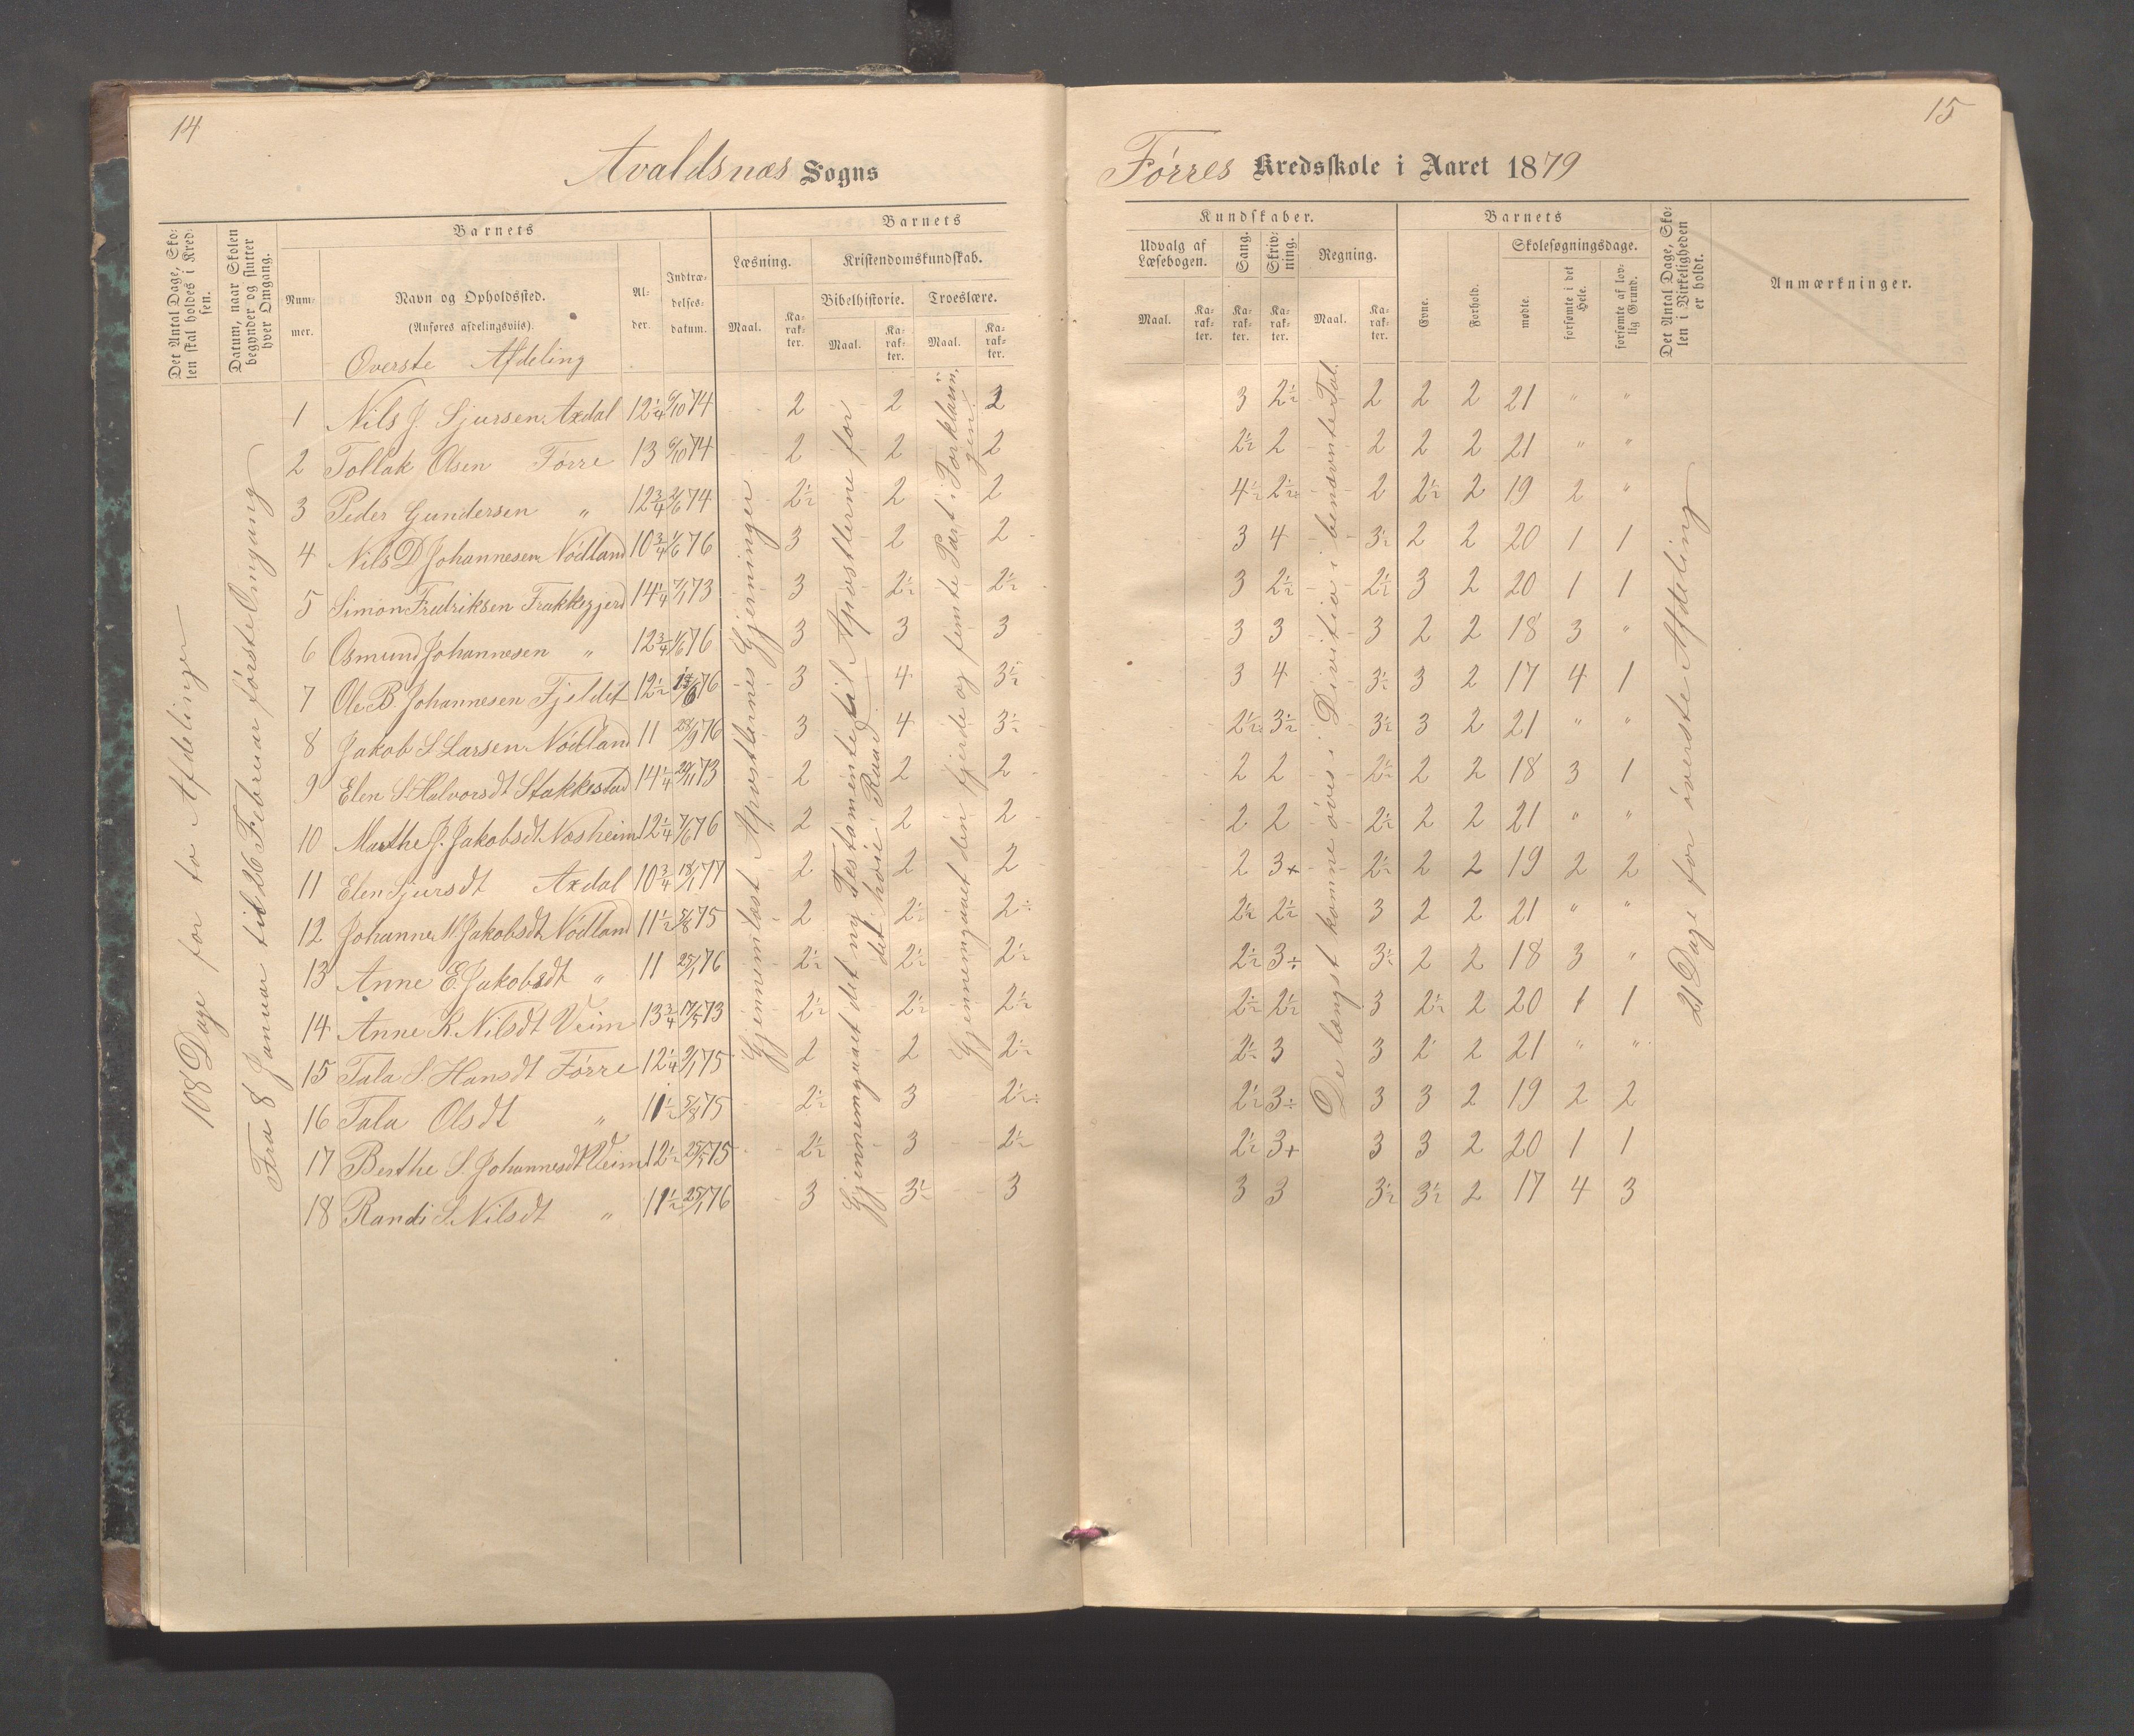 14
15
Avaldsnæs Sogns
Førres Kredsskole i Aaret 1879
Det Antal Dage, Skolen skal holdes i Kredsen.
Datum, naar Skolen begynder og slutter hver Omgang.
Barnets
Nummer.
Navn og Opholdssted.
(Anføres afdelingsviis).
Alder.
Indtrædelsesdatum.
Barnets
Læsning.
Maal.
Karakter.
Kristendomskundskab.
Bibelhistorie.
Maal.
Karakter.
Troeslære.
Maal.
Karakter.
Kundskaber.
Udvalg af Læsebogen.
Maal.
Karakter.
Sang.
Karakter.
Skrivning.
Karakter.
Regning.
Maal.
Karakter.
Barnets
Evne.
Forhold.
Skolesøgningsdage.
mødte.
forsømte i det Hele.
forsømte af lovlig Grund.
Det Antal Dage, Skolen i Virkeligheden er holdt.
Anmærkninger.
Øverste Afdeling
108 Dage for to Afdelinger
Fra 8 Januar til 26 Februar første Omgang
Gjennemlæst Apostlernes Gjerninger
Gjennemgaaet det ny Testamente til Apostlerne for det høie Raad.
Gjennemgaaet den fjerde og femte Part i Forklaringen.
De længst komne øves i Divitio i benævnte Tal.
21 Dage for øverste Afdeling
1 Nils J. Sjursen Axdal 12 1/4 6/10 74 2 2 2 3 2 1/2 2 2 2 21 " "
2 Tollak Olsen Førre 13 6/10 74 2 2 2 2 1/2 2 2 2 2 21 " "
3 Peder Gundersen " 12 3/4 2/6 74 2 1/2 2 2 4 1/2 2 1/2 2 2 1/2 2 19 2 "
4 Nils D Johannesen Nødland 10 3/4 1/6 76 3 2 2 3 4 3 1/2 2 2 20 1 1
5 Simon Fredriksen Frakkegjerd 14 1/4 7/1 73 3 2 1/2 2 1/2 3 2 1/2 2 1/2 3 2 20 1 1
6 Osmund Johannesen " 12 3/4 1/6 76 3 3 3 3 3 3 2 2 18 3 "
7 Ole B. Johannesen Fjeldet 12 1/2 76 3 4 3 1/2 3 4 3 1/2 3 2 17 4 1
8 Jakob S Larsen Nødland 11 28/9 76 3 4 3 1/2 2 1/2 3 1/2 3 1/2 3 2 21 " "
9 Elen S. Halvorsdt Stakkestad 14 1/4 20/11 73 2 2 2 2 2 2 1/2 2 2 18 3 1
10 Marthe J. Jakobsdt Næsheim 12 1/4 7/6 76 2 2 2 2 2 2 1/2 2 2 21 " "
11 Elen Sjursdt Axdal 10 3/4 18/1 77 2 2 2 2 3+ 2 1/2 2 2 19 2 2
12 Johanne M. Jakobsdt Nødland 11 1/2 5/8 75 2 2 1/2 2÷ 2 1/2 2 1/2 3 2 2 21 " "
13 Anne E. Jakobsdt " 11 25/1 76 2 1/2 2 1/2 2 1/2 2 1/2 3÷ 3 1/2 2 2 18 3 "
14 Anne R. Nilsdt Veim 13 3/4 17/5 73 2 1/2 2 1/2 2 1/2 2 1/2 2 1/2 3 2 1/2 2 20 1 1
15 Tala S. Hansdt Førre 12 1/4 9/1 75 2 2 2 1/2 2 1/2 3 3 2 2 21 " "
16 Tala Olsdt " 11 1/2 5/8 75 2 1/2 3 2 1/2÷ 2 1/2 3÷ 3 3 2 19 2 2
17 Berthe S. Johannesdt Veim 12 1/2 25/5 75 2 1/2 3 2 1/2 2 1/2 3+ 3 3 2 20 1 1
18 Randi S. Nilsdt " 11 1/2 25/1 76 3 3 1/2 3 3 3 3 1/2 3 1/2 2 17 4 3